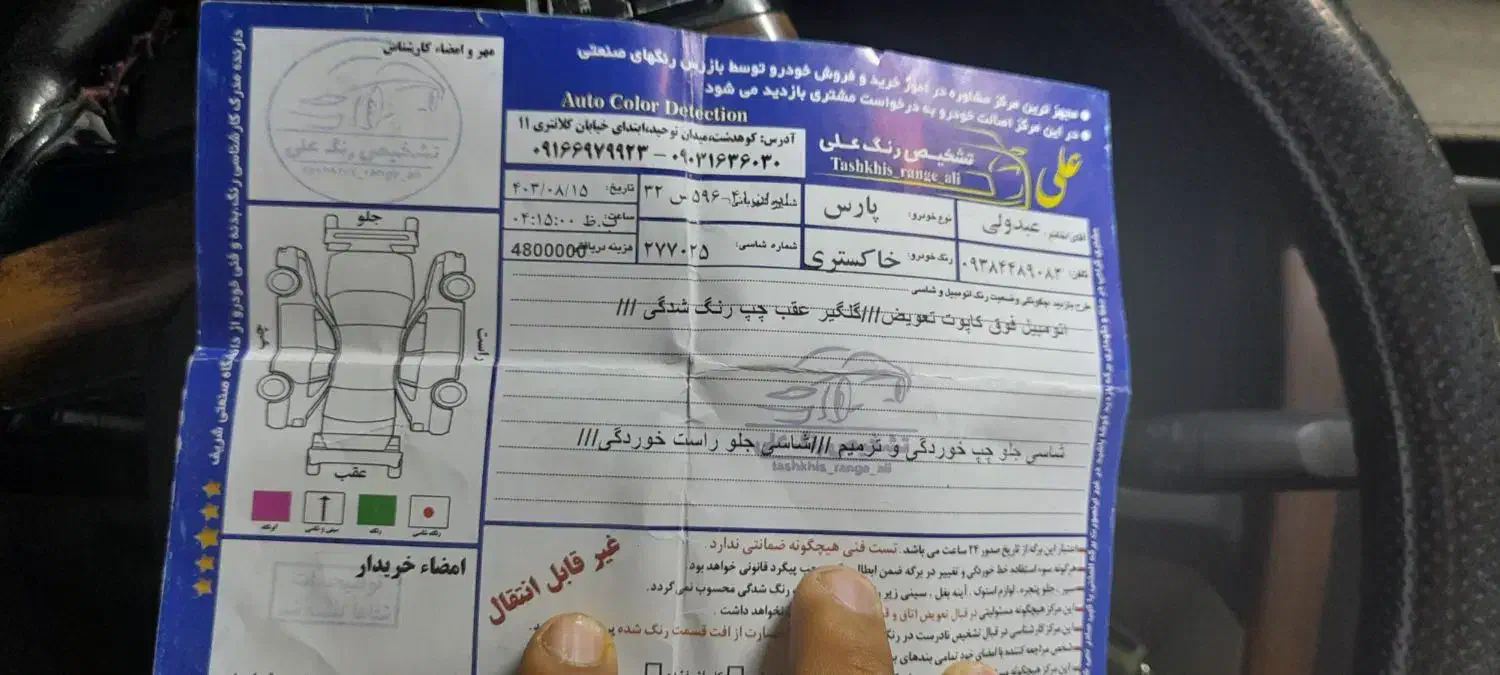 مجهز ترین مرکز مشاوره در امور خرید و فروش خودرو توسط بازرس رنگهای صنعتی
در این مرکز اصالت خودرو به درخواست مشتری بازدید می شود
Auto Color Detection
آدرس: کوهدشت،میدان توحید،ابتدای خیابان گلانتری ۱۱
۰۹۱۶۶۹۷۹۹۲۳ – ۰۹۰۲۱۶۳۶۰۳۰
علی
تشخیص رنگ علی
Tashkhis_range_ali
مهر و امضاء کارشناس
تشخیص رنگ علی
tashkhis_range_ali
دارنده مدرک کارشناسی رنگ بدنه و فنی خودرو از دانشگاه صنعتی شریف
عبدولی
نوع خودرو: پارس
۵۹۶س ۳۲
تاریخ: ۴۰۳/۰۸/۱۵
ساعت: ۰۴:۱۵:۰۰ ق.ظ
تلفن: ۰۹۳۸۴۴۸۹۰۸۲
رنگ خودرو: خاکستری
شماره شاسی: ۲۷۷۰۲۵
هزینه 4800000
طرح بازدید چگونگی وضعیت رنگ اتومبیل و شاسی
اتومبیل فوق کاپوت تعویض///گلگیر عقب چپ رنگ شدگی ///
شاسی جلو چپ خوردگی و ترمیم ///شاسی جلو راست خوردگی///
tashkhis_range_ali
جلو
راست
چپ
عقب
رنگ
امضاء خریدار
غیر قابل انتقال
اعتبار این برگه از تاریخ صدور ۲۴ ساعت می باشد . تست فنی هیچگونه ضمانتی ندارد .
هرگونه سوء استفاده خط خوردگی و تغییر در برگه ضمن ابطال پیگرد قانونی خواهد بود
جلو پنجره ، لوازم استوک ، آینه بغل ، سینی زیر رنگ شدگی محسوب نمی گردد .
این مرکز هیچگونه مسئولیتی در قبال تعویض اتاق و نخواهد داشت .
این مرکز کارشناسی در قبال تشخیص نادرست در رنگ خسارت از افت قسمت رنگ شده
شخص مراجعه کننده با امضای خود تمامی بندهای
این مرکز هیچگونه